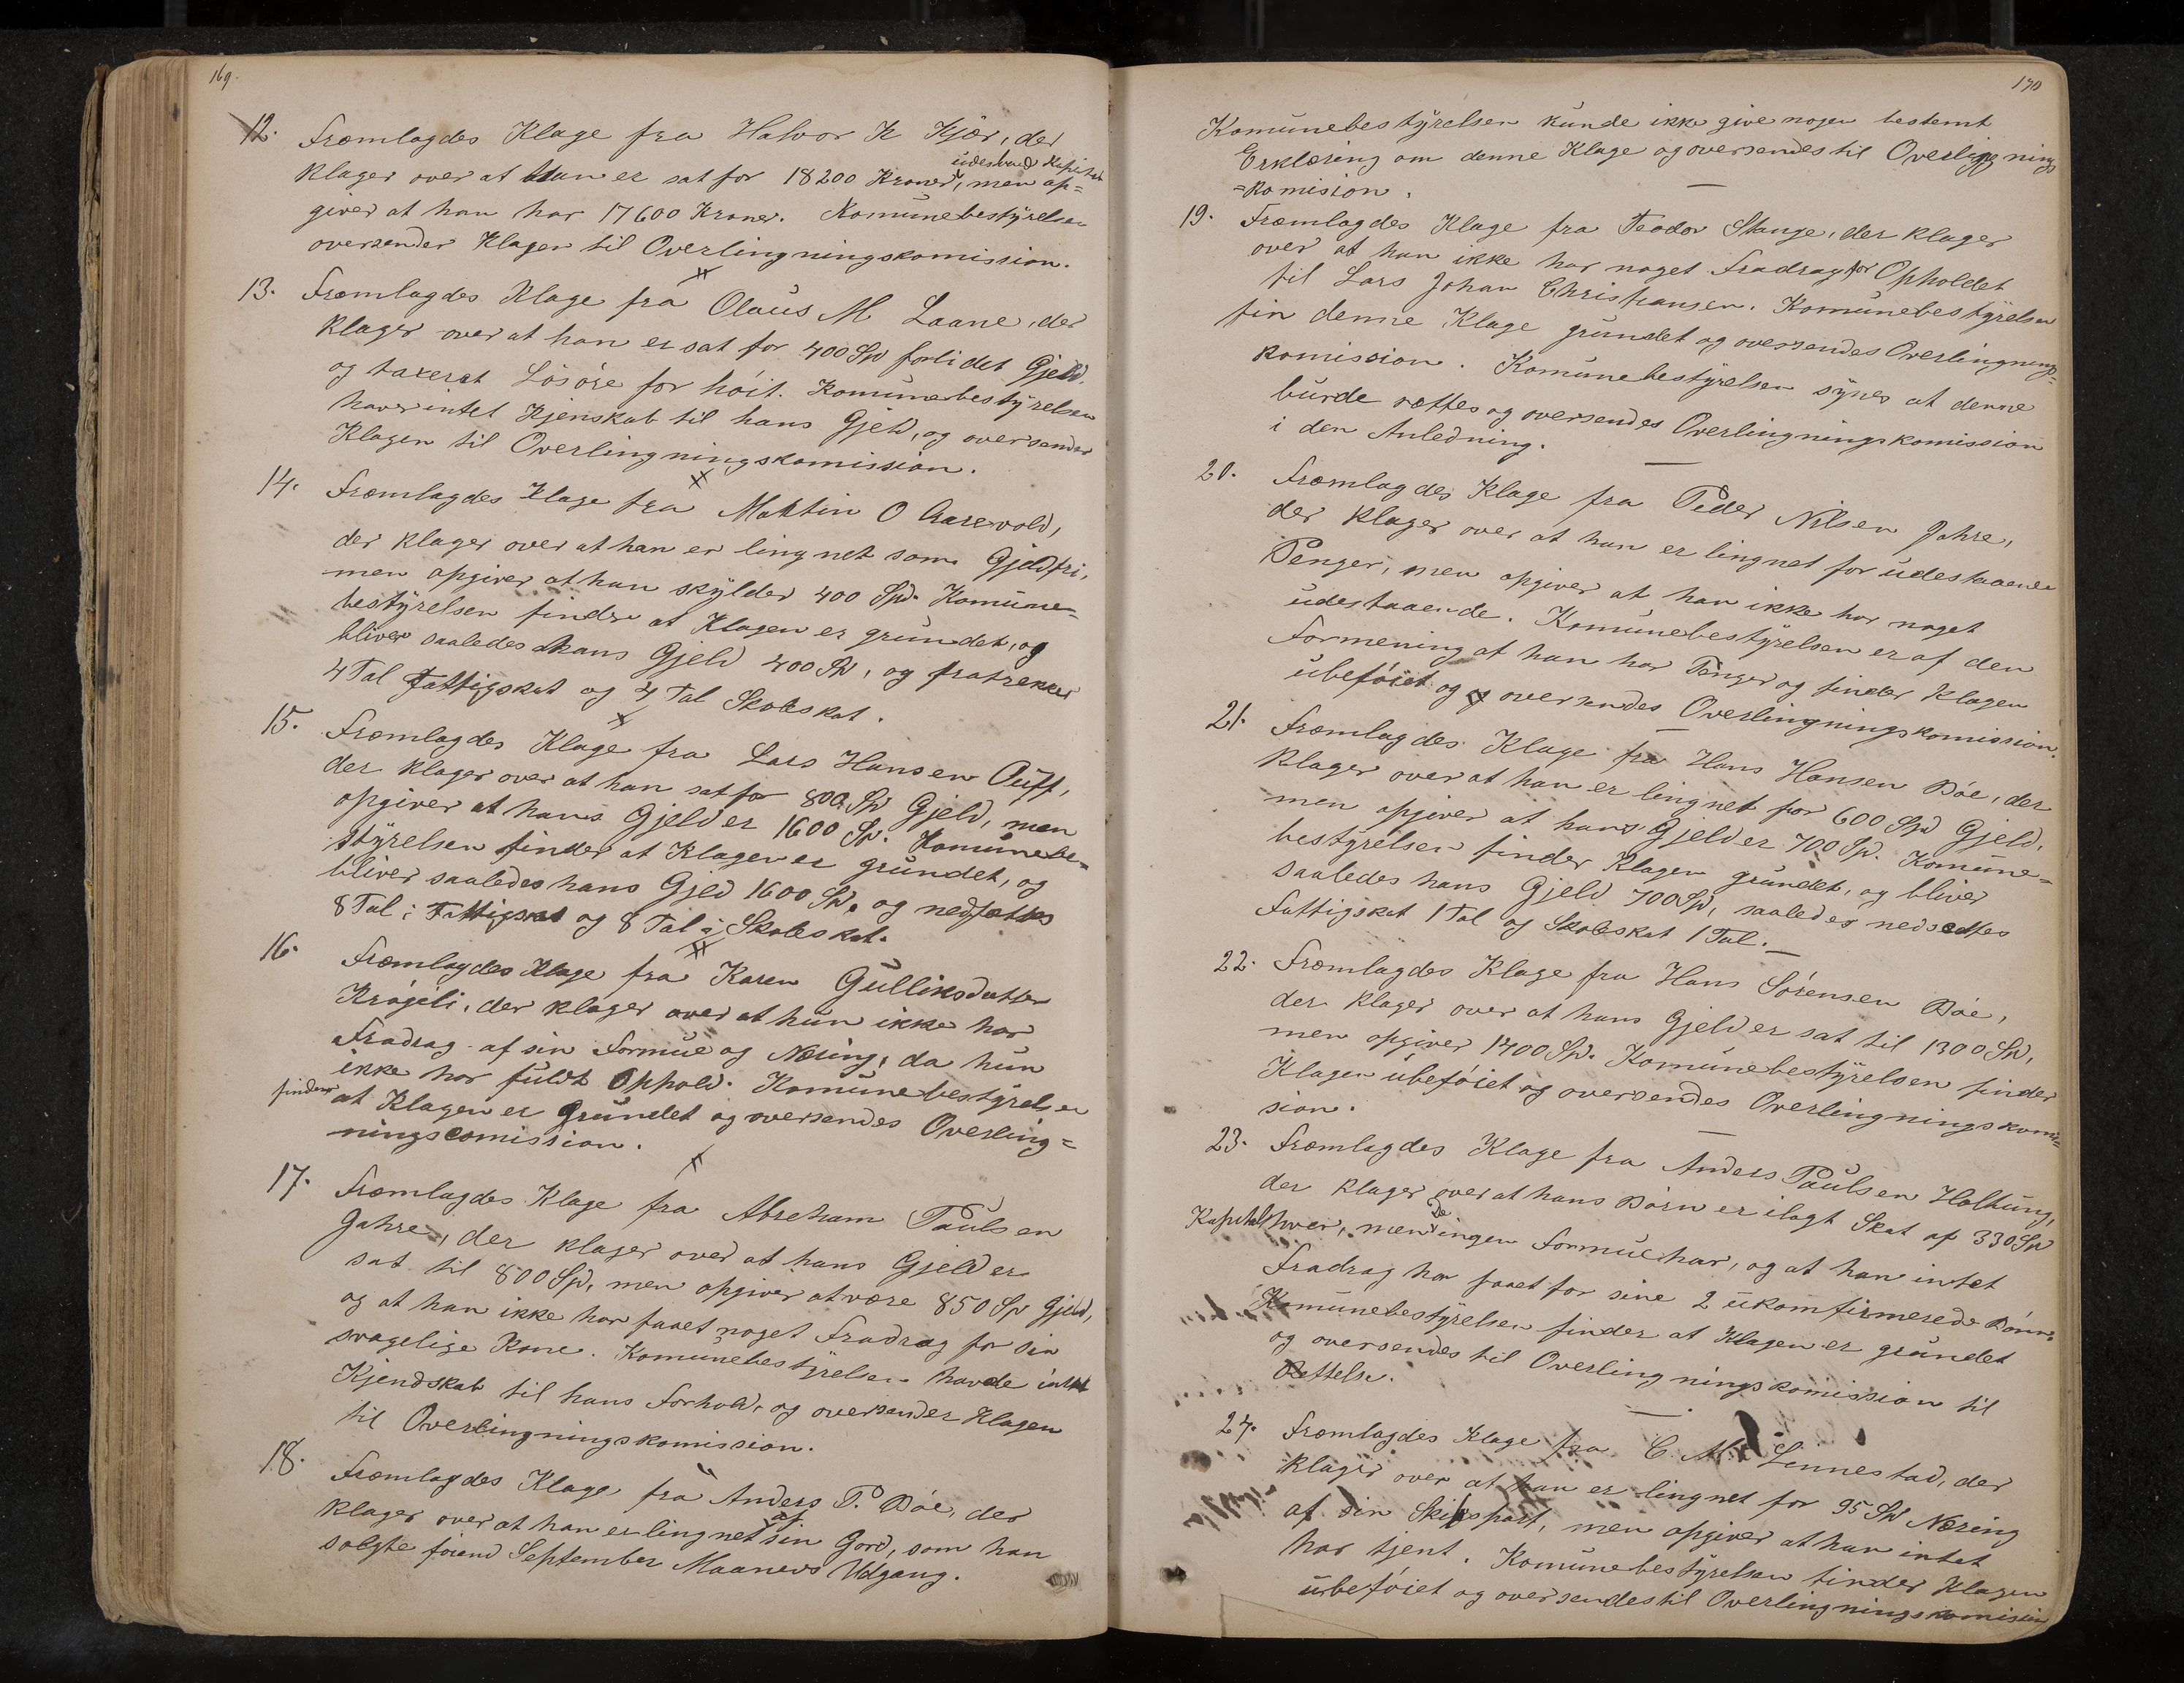 169.
12. Fremlagdes Klage fra Halvor K Kjær, der
klager over at Han er sat for 18200 Kroner udestaaend Kapital, men op=
giver at han har 17600 Kroner. Komünebestÿrelsen
oversender Klagen til Overlingningskomission.
13. Fremlagdes Klage fra Olaüs M Laane, der
klager over at han er sat for 400 Spd forlidet Gjeld,
og taxeret Lösöre for höit. Komünebestÿrelsen
haver intet Kjenskab til hans Gjeld, og oversender
Klagen til Overlingningskomission.
14. Fremlagdes Klage fra Maktin O Aasevold,
der klager over at han er lingnet som Gjeldfri,
men opgiver at han skÿlder 400 Spd. Komüne=
bestÿrelsen finder at Klagen er gründet, og
bliver saaledes hans Gjeld 400 Spd, og fratrekker
4 Tal Fattigskat og 4 Tal Skoleskat.
15. Fremlagdes Klage fra Lars Hansen Aüff,
der klager over at han sat for 800 Sp Gjeld, men
opgiver at hans Gjeld er 1600 Sp. Komünebe=
stÿrelsen finder at Klagen er gründet, og
bliver saaledes hans Gjed 1600 Sp. og nedsættes
8 Tal i Fattigskat og 8 Tal i Skoleskat.
16. Fremlagdes Klage fra Karen Gülliksdatter
Krøjeli, der klager over at hün ikke har
Fradrag af sin Formüe og Næring, da hün
ikke har füldt Ophold. Komünebestÿrelsen
finder at Klagen er Gründet og oversendes Overling=
ningscomission.
17. Fremlagdes Klage fra Abreham Paülsen
Jahre, der klager over at hans Gjeld er
sat til 800 Spd, men opgiver at være 850 Sp Gjeld,
og at han ikke har faaet noget Fradrag for sin
svagelige Kone. Komünebestÿrelsen havde intet
Kjendskab til hans Forhold, og oversender Klagen
til Overlingningskomission.
18. Fremlagdes Klage fra Anders P. Böe, der
klager over at han er lingnet af sin Gord, som han
solgte förend September Maaneds Udgang.
170
Komünebestÿrelsen künde ikke give nogen bestemt
Erklæring om denne Klage og oversendes til Overlignings
=komision.
19. Fremlagdes Klage fra Teodor Stange, der klager
over at han ikke har noget Fradrag for Opholdet
til Lars Johan Christiansen. Komünebestÿrelsen
fin denne Klage gründet og oversendes Overlingnings=
komission. Komünebestÿrelsen sÿnes at denne
bürde rettes og oversendes Overlingningskomission
i den Anledning.
20. Fremlagdes Klage fra Peder Nilsen Jahre,
der klager over at han er lingnet for üdestaaende
Penger, men opgiver at han ikke har noget
üdestaaende. Komünebestÿrelsen er af den
Formening at han har Penger og finder Klagen
übeföiet og oversendes Overlingningskomission.
21. Fremlagdes Klage fra Hans Hansen Böe, der
klager over at han er lingnet for 600 Spd Gjeld,
men opgiver at hans Gjeld er 700 Sp. Komüne=
bestÿrelsen finder Klagen gründet, og bliver
saaledes hans Gjeld 700 Sp, saaledes nedsættes
Fattigskat 1 Tal og Skoleskat 1 Tal.
22. Fremlagdes Klage fra Hans Sörensen Böe,
der klager over at hans Gjeld er sat til 1300 Sp,
men opgiver 1400 Sp. Komünebestÿrelsen finder
Klagen übeföiet og oversendes Overlingningskomi=
sion.
23. Fremlagdes Klage fra Anders Paülsen Holtüng,
der klager over at hans Börn er ilagt Skat af 330 Sp
Kapital hver, men de ingen Formüe har, og at han intet
Fradrag har faaet for sine 2 ükomfirmerede Börn.
Komünebestÿrelsen finder at Klagen er gründet
og oversendes til Overlingningskomission til
Rettelse.
24. Fremlagdes Klage fra C. M. Linnestad, der
klager over at han er lingnet for 95 Sp Næring
af sin Skibspart, men opgiver at han intet
har tjent. Komünebestÿrelsen finder Klagen
übeföiet og oversendes til Overlingningskomision